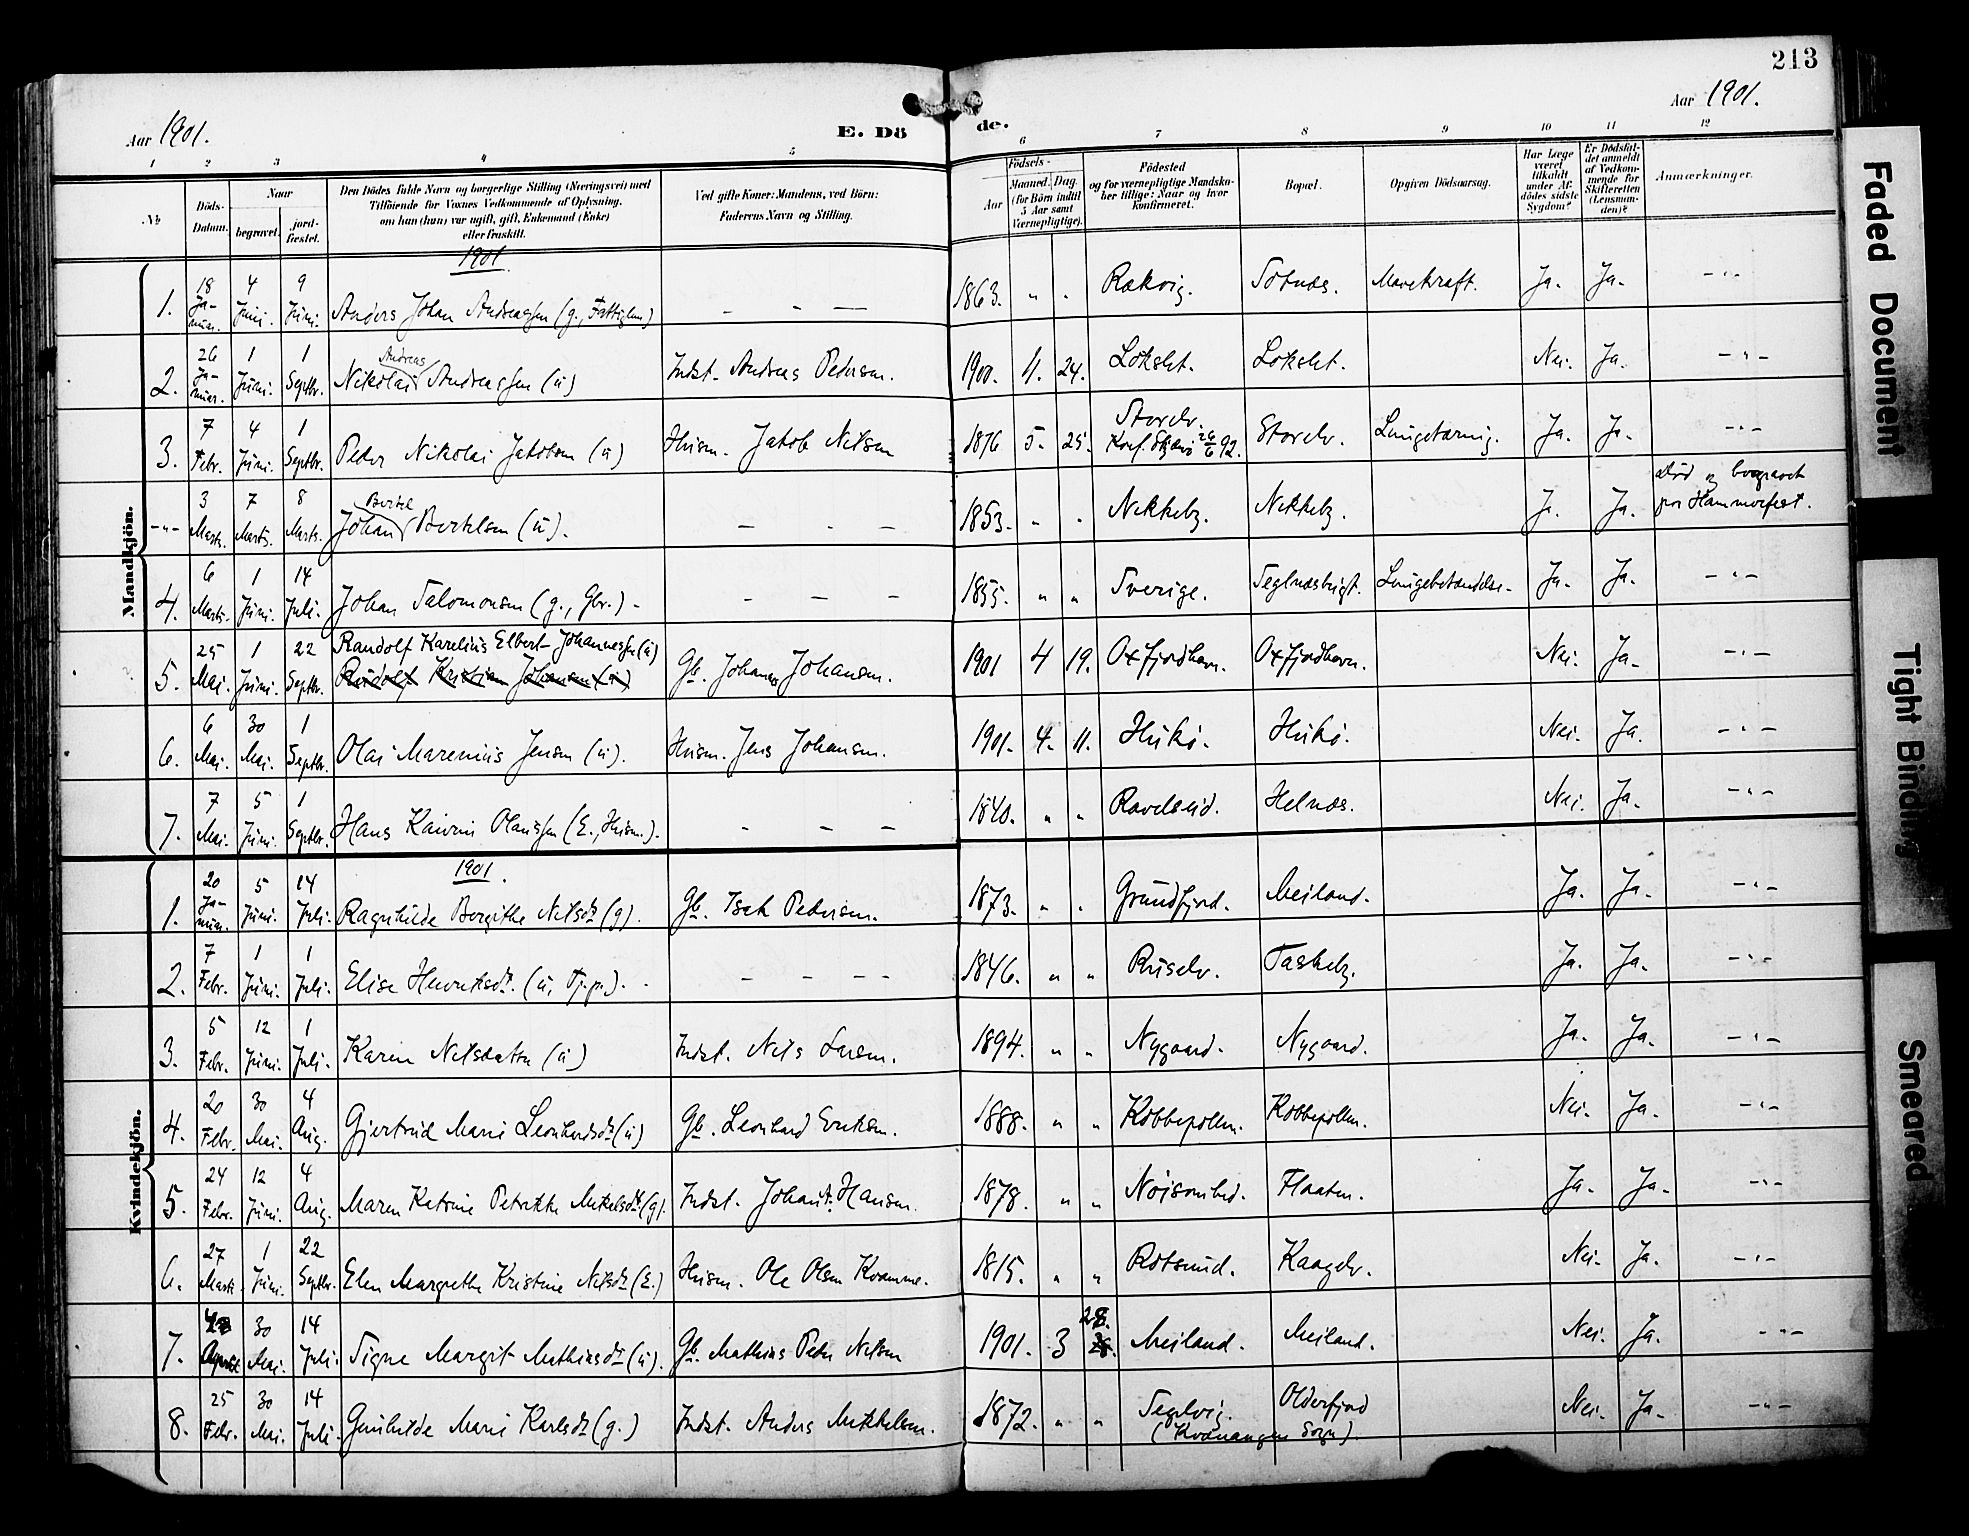 213
Aar 1901.
E. Dö
de.
Aar 1901.
1 2 3 4 5 6 7 8 9 10 11 12
No
Döds-Datum.
Naar
begravet.
jordfæstet.
Den Dödes fulde Navn og borgerlige Stilling (Næringsvei) med
Tilföiende for Voxnes Vedkommende af Oplysning,
om han (hun) var ugift, gift, Enkemand (Enke)
eller fraskilt.
Ved gifte Koner: Mandens, ved Börn:
Faderens Navn og Stilling.
Födsels-
Aar
Maaned. Dag.
(for Börn indtil 5 Aar samt Værnepligtige).
Födested
og for værnepligtige Mandskaber tillige: Naar og hvor konfirmeret.
Bopæl.
Opgiven Dödsaarsag.
Har Læge været tilkaldt under Afdödes sidste Sygdom?
Er Dödsfaldet anmeldt af Vedkommende for Skifteretten (Lensmanden)?
Anmærkninger.
Mandkjön.
1901
1. 18 Januar. 4 Juni. 9 Juni. Anders Johan Andreassen (g., Fattiglem) - - — 1863. " " Rakvig. Sotnæs. Marekraft. Ja. Ja. - " -
2. 26 Januar. 1 Juni. 1 Septbr. Nikolai Andreas Andreassen (u) Indst. Andreas Pedersen. 1900. 11. 24. Löksl*t*. Nei. Ja. - " -
3. 7 Febr. 4 Juni. 1 Septbr. Peder Nikolai Jakobsen (u) Husm. Jakob Nilsen 1876 5. 25. Storelv. Konf. Skjærvö 26/6 92. Storelv. Lungetæring. Ja. Ja. - " -
- " - 3 Marts. 7 Marts. 8 Marts. Johan Bertel Bertelsen (u). - - - 1853. " " Nikkeby. Nikkeby. Ja. Ja. Död og begravet paa Hammerfest.
4. 6 Marts. 1 Juni. 14 Juli. Johan Salomonsen (g., Gbr.). - - - 1855. " " Sverige. Lungebetændelse. Ja. Ja. - " -
5. 25 Mai. 1 Juni. 22 Septbr. Randolf Karelius Elbert Johannessen (u) Rudolf Kristian Johansen (u) Gb. Johannes Johansen. 1901 4 19. Oxfjordhavn. Oxfjordhavn. Nei. Ja. - " -
6. 6 Mai. 30 Mai. 1 Septbr. Olai Marenius Jensen (u). Husm. Jens Johansen. 1901. 4. 11. Hukö. Hukö. Nei. Ja. - " -
7. 7 Mai. 5 Juni. 1 Septbr. Hans Olaussen (E., Husm.). - - - 1840. " " Ravelseid. Helnæs. Nei. Ja. - " -
Kvindekjön.
1901.
1. 20 Januar. 5 Juni. 14 Juli. Ragnhilde Bergithe Nilsdtr (g). Gb. Isak Pedersen. 1873. " " Grundfjord. Meiland. Ja. Ja. - " -
2. 7 Febr. 1 Juni. 1 Juli. Elise Henriksdtr. (u, Tj.p.). - - - - 1846. " " Ruselv. Taskeby. Ja. Ja. - " -
3. 5 Febr. 12 Juni. 1 Juli. Karen Nilsdatter (u) Indst. Nils Larsen. 1894. " " Nygaard. Nygaard. Ja. Ja. - " -
4. 20 Febr. 30 Mai. 4 Aug. Gjertrud Marie Leonhardsdtr (u) Gb. Leonhard Eriksen. 1888. " " Kobbepollen. Kobbepollen. Nei. Ja. - " -
5. 24 Febr. 12 Juni. 4 Aug. Maren Katrine Petrikke Mikelsdtr (g). Indst. Johan A. Hansen. 1878. " " Flaaten. Ja. Ja. - " -
6. 27 Marts. 1 Juni. 22 Septbr. Elen Margrethe Kristine Nilsdtr (E.) Husm. Ole Olsen Kvamme. 1815. " " Rotsund. Kaagelv. Nei. Ja. - " -
7. April 30 Mai. 14 Juli. Signe Margit Mathiasdtr (u). Gb. Mathias Peder Nilsen 1901. 3 Meiland. Meiland. Nei. Ja. - " -
8. 25 Febr. 30 Mai. 14 Juli. Gunhilde Marie Karlsdtr (g.) Indst. Anders Mikkelsen. 1872. " " Segelvig. (Kvænangen Sogn). Olderfjord Nei. Ja. - " -
Faded Document
Tight Binding
Smeared